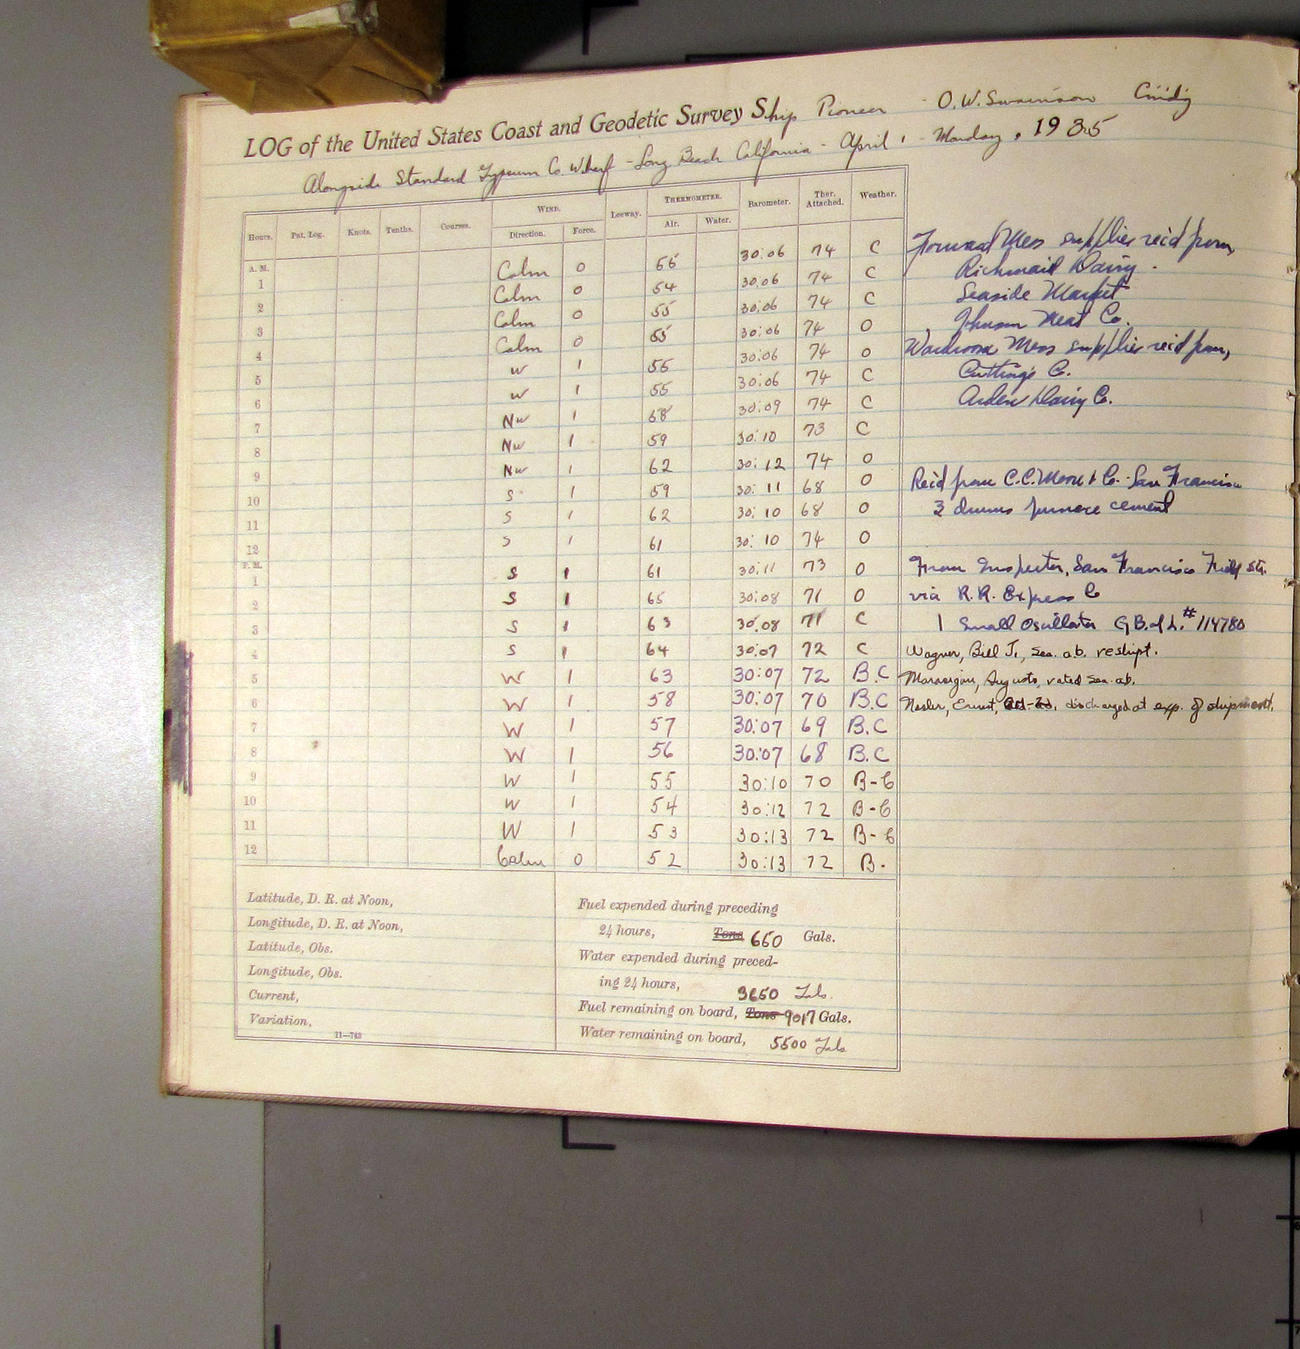 LOG of the United States Coast and Geodetic Survey Ship Pioneer - O.W. Swainson Cmdg
Alongside Standard Gypsum Co. Wharf - Long Beach California - April 1 - Monday, 1935
Hours. Pat. Log. Knots. Tenths. Courses. WIND. Leeway. THERMOMETER. Barometer. Ther. Attached. Weather.
Direction. Force. Air. Water.
A. M.
1 Calm 0 55 30:06 74 C
2 Calm 0 54 30:06 74 C
3 Calm 0 55 30:06 74 C
4 Calm 0 55 30:06 74 O
5 W 1 55 30:06 74 O
6 W 1 55 30:06 74 C
7 NW 1 58 30:09 74 C
8 NW 1 59 30:10 73 C
9 NW 1 62 30:12 74 O
10 S 1 59 30:11 68 O
11 S 1 62 30:10 68 O
12 S 1 61 30:10 74 O
P. M.
1 S 1 61 30:11 73 O
2 S 1 65 30:08 71 O
3 S 1 63 30:08 71 C
4 S 1 64 30:07 72 C
5 W 1 63 30:07 72 B.C
6 W 1 58 30:07 70 B.C
7 W 1 57 30:07 69 B.C
8 W 1 56 30:07 68 B.C
9 W 1 55 30:10 70 B-C
10 W 1 54 30:12 72 B-C
11 W 1 53 30:13 72 B-C
12 Calm 0 52 30:13 72 B.
Forward Mess supplies rec'd from,
Richmaid Dairy.
Seaside Market
Johnson Meat Co.
Wardroom Mess supplies rec'd from,
Cuttings Co.
Arden Dairy Co.
Rec'd from C.C. Moore & Co. San Francisco
3 drums furnace cement
From Inspector, San Francisco Field Sta.
via R.R. Express Co
1 Small Oscillator G.B. of L. # 114780
Wagner, Bill J., Sea. a.b. reshipt.
Augusto, rated sea. a.b.
Nesler, Ernest, discharged at exp. of shipment.
Latitude, D. R. at Noon,
Longitude, D. R. at Noon,
Latitude, Obs.
Longitude, Obs.
Current,
Variation,
11—743
Fuel expended during preceding
24 hours, Tons 660 Gals.
Water expended during preced-
ing 24 hours, 3650 Gals.
Fuel remaining on board, Tons 9017 Gals.
Water remaining on board, 5500 Gals.